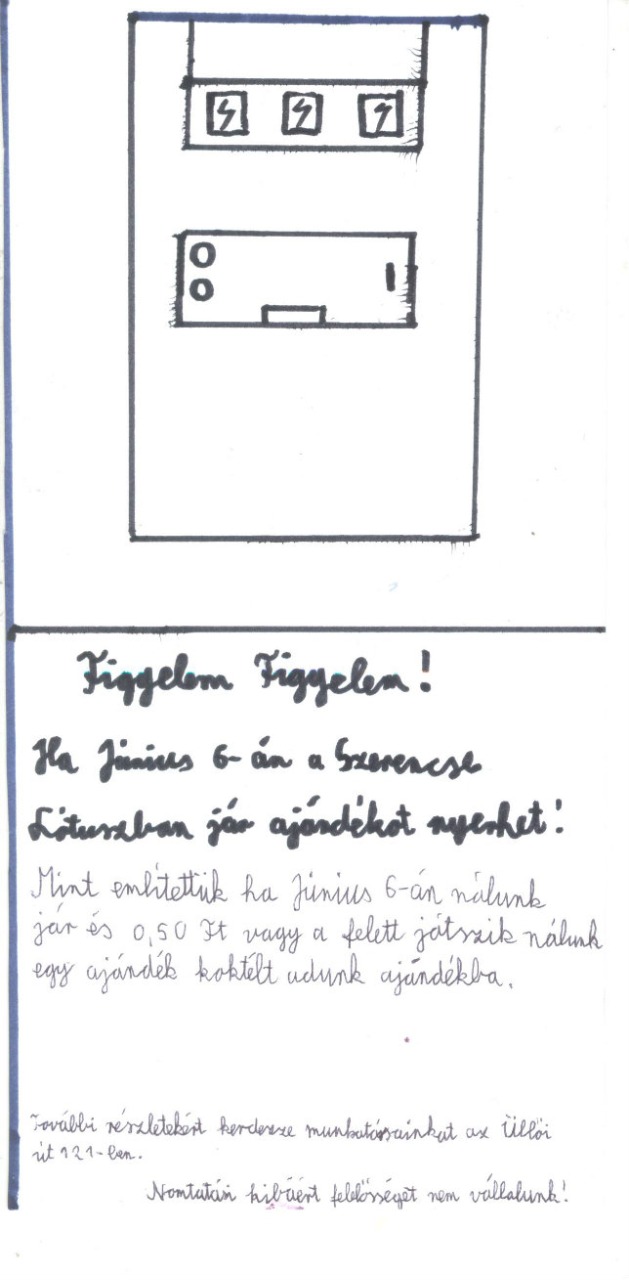 Figyelem Figyelem!
Ha Június 6-án a Szerencse
Lótuszban jár ajándékot nyerhet!
Mint említettük ha Június 6-án nálunk
jár és 0,50 Ft vagy a felett játszik nálunk
egy ajándék koktélt adunk ajándékba.
További részletekért kerdezze munkatársainkat az Üllői
út 121-ben.
Nomtatási hibáért felelősséget nem vállalunk!